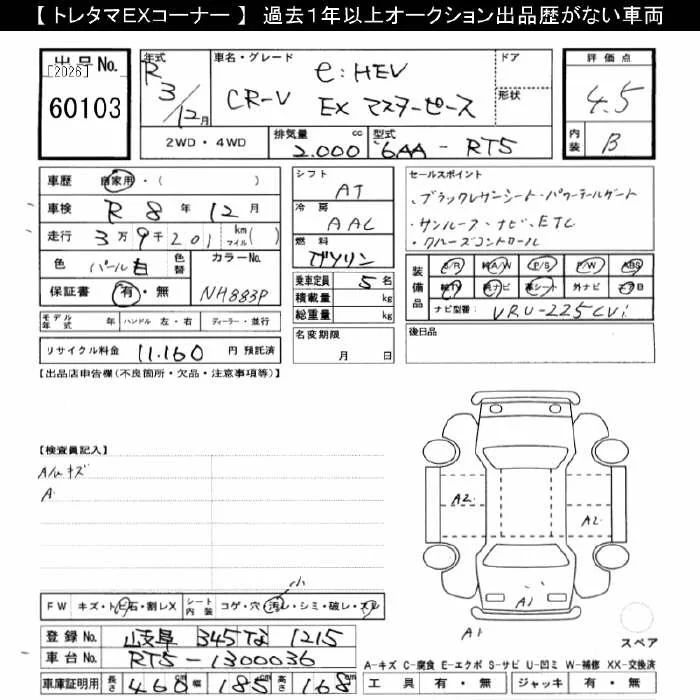 【 トレタマEXコーナー 】 過去1年以上オークション出品歴がない車両
出品No.
[2026]
60103
年式
R 3/12月
車名・グレード
e:HEV
CR-V EX マスターピース
ドア
形状
評価点
4.5
内装
B
2WD・4WD
排気量
2.000 cc
型式
6AA - RT5
車歴 自家用・( )
車検 R 8年 12月
走行 3万9千201 km マイル( )
色 パール白 色替
カラーNo. NH883P
保証書 有・無
モデル年式 年 ハンドル 左・右 ディーラー・並行
リサイクル料金 11.160 円 預託済
シフト AT
冷房 AAC
燃料 ガソリン
乗車定員 5 名
積載量 kg
総重量 kg
名変期限
月 日
セールスポイント
、ブラックレザーシート・パワーテールゲート
・サンルーフ・ナビ、ETC
・クルーズコントロール
装備品
S/R 純A/W P/S P/W ABS
純TV 純ナビ 革シート 外ナビ エアB
ナビ型番: VRU-225CVi
後日品
【出品店申告欄(不良箇所・欠品・注意事項等)】
【検査員記入】
A/wキズ
A
A2
A2
A1
A1
スペア
小
FW キズ・トビ石・割レX シート内装 コゲ・穴・汚レ・シミ・破レ・スレ
登録No. 岐阜 345 な 1215
車台No. RT5-1300036
車庫証明用 長さ 460 幅 185 高さ 168
A-キズ C-腐食 E-エクボ S-サビ U-凹ミ W-補修 XX-交換済
工具 有・無 ジャッキ 有・無